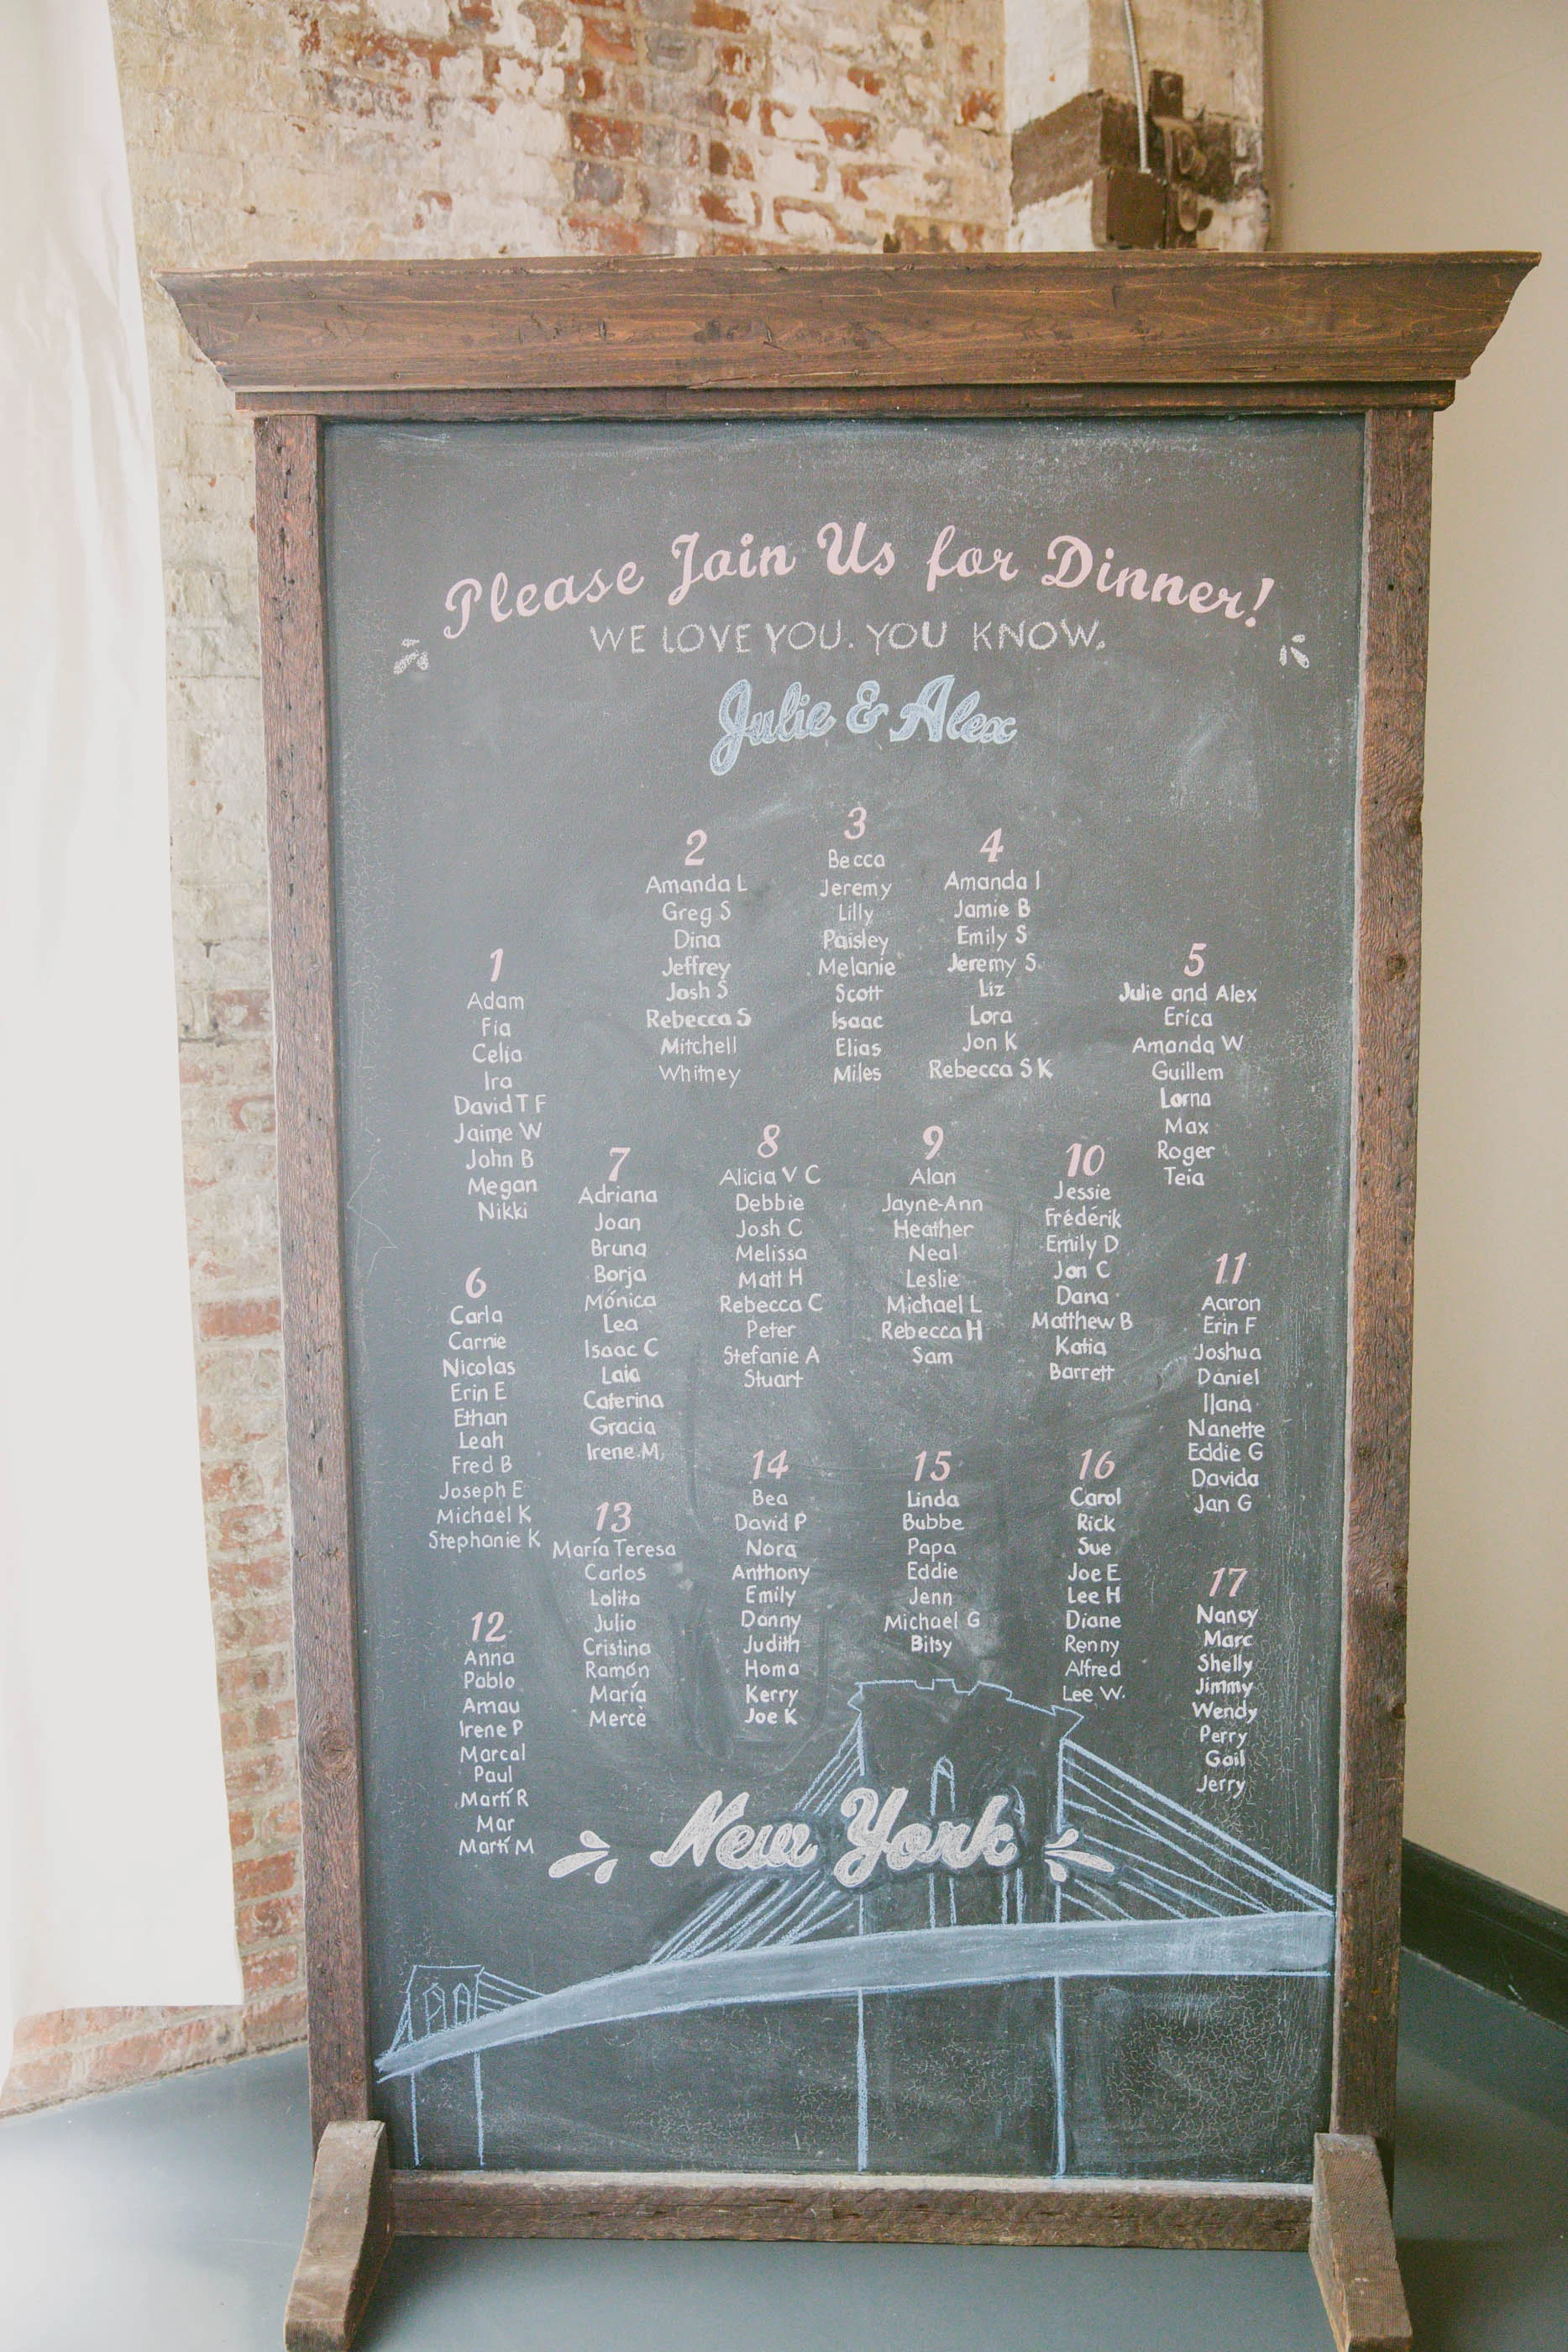 Please Join Us for Dinner!
WE LOVE YOU. YOU KNOW.
Julie & Alex
1
Adam
Fia
Celia
Ira
David T F
Jaime W
John B
Megan
Nikki
2
Amanda L
Greg S
Dina
Jeffrey
Josh S
Rebecca S
Mitchell
Whitney
3
Becca
Jeremy
Lilly
Paisley
Melanie
Scott
Isaac
Elias
Miles
4
Amanda I
Jamie B
Emily S
Jeremy S
Liz
Lora
Jon K
Rebecca S K
5
Julie and Alex
Erica
Amanda W
Guillem
Lorna
Max
Roger
Teia
6
Carla
Carnie
Nicolas
Erin E
Ethan
Leah
Fred B
Joseph E
Michael K
Stephanie K
7
Adriana
Joan
Bruna
Borja
Mónica
Lea
Isaac C
Laia
Caterina
Gracia
Irene M
8
Alicia V C
Debbie
Josh C
Melissa
Matt H
Rebecca C
Peter
Stefanie A
Stuart
9
Alan
Jayne-Ann
Heather
Neal
Leslie
Michael L
Rebecca H
Sam
10
Jessie
Frédérik
Emily D
Jon C
Dana
Matthew B
Katia
Barrett
11
Aaron
Erin F
Joshua
Daniel
Ilana
Nanette
Eddie G
Davida
Jan G
12
Anna
Pablo
Arnau
Irene P
Marcal
Paul
Martí R
Mar
Martí M
13
María Teresa
Carlos
Lolita
Julio
Cristina
Ramón
María
Mercè
14
Bea
David P
Nora
Anthony
Emily
Danny
Judith
Homa
Kerry
Joe K
15
Linda
Bubbe
Papa
Eddie
Jenn
Michael G
Bitsy
16
Carol
Rick
Sue
Joe E
Lee H
Diane
Renny
Alfred
Lee W.
17
Nancy
Marc
Shelly
Jimmy
Wendy
Perry
Gail
Jerry
New York